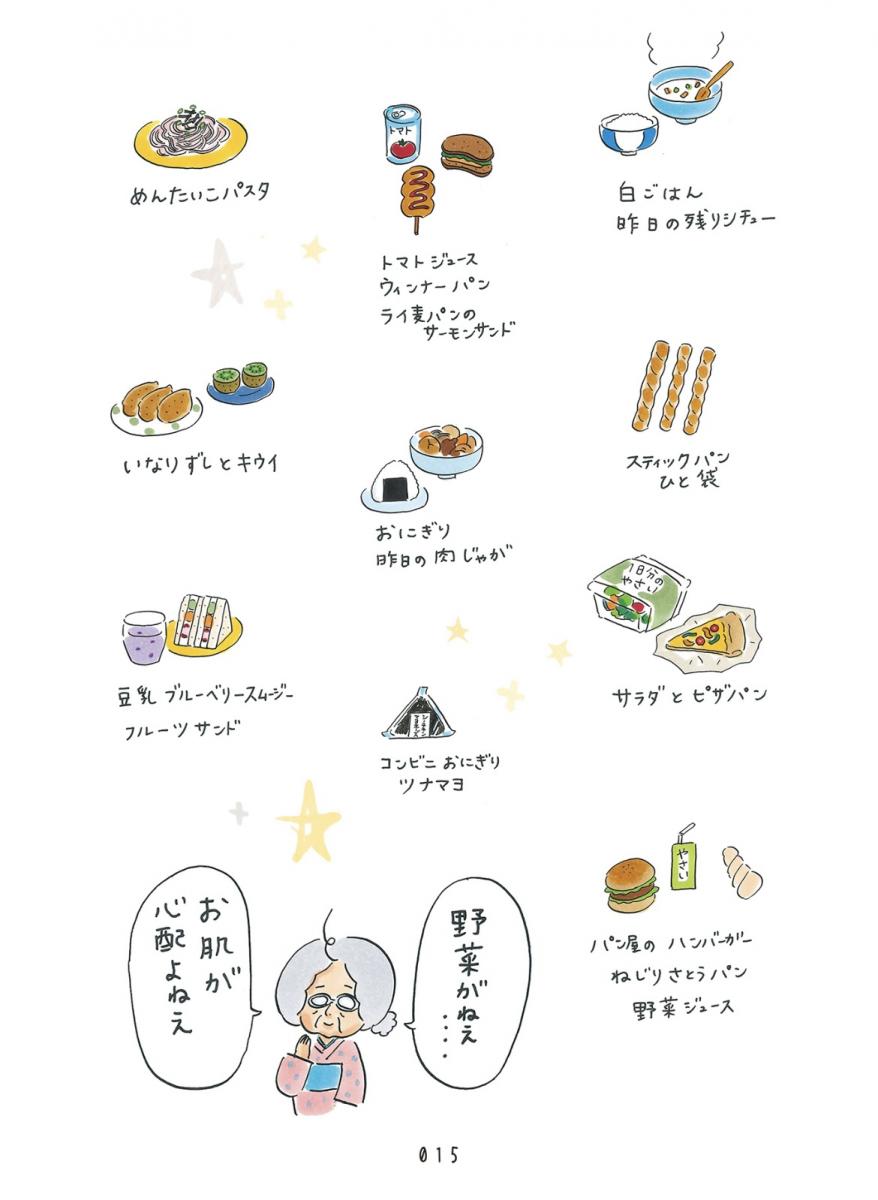 めんたいこパスタ
トマト
トマトジュース
ウィンナーパン
ライ麦パンの
サーモンサンド
白ごはん
昨日の残りシチュー
いなりずしとキウイ
おにぎり
昨日の肉じゃが
スティックパン
ひと袋
豆乳ブルーベリースムージー
フルーツサンド
シーチキン
マヨネーズ
コンビニおにぎり
ツナマヨ
1日分の
やさい
サラダとピザパン
やさい
パン屋のハンバーガー
ねじりさとうパン
野菜ジュース
野菜がねえ‥‥
お肌が
心配よねえ
015